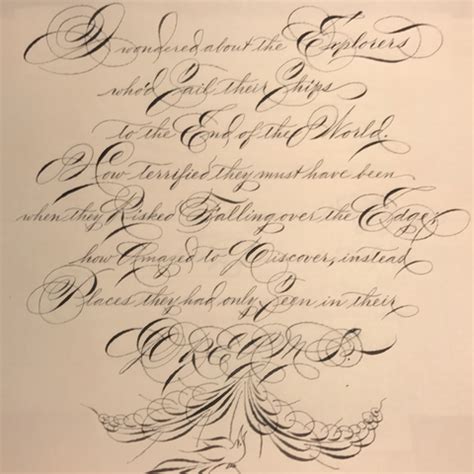 I wondered about the Explorers
who'd Sail their Ships
to the End of the World.
How terrified they must have been
when they Risked Falling over the Edge;
how Amazed to Discover, instead
Places they had only Seen in their
DREAMS.